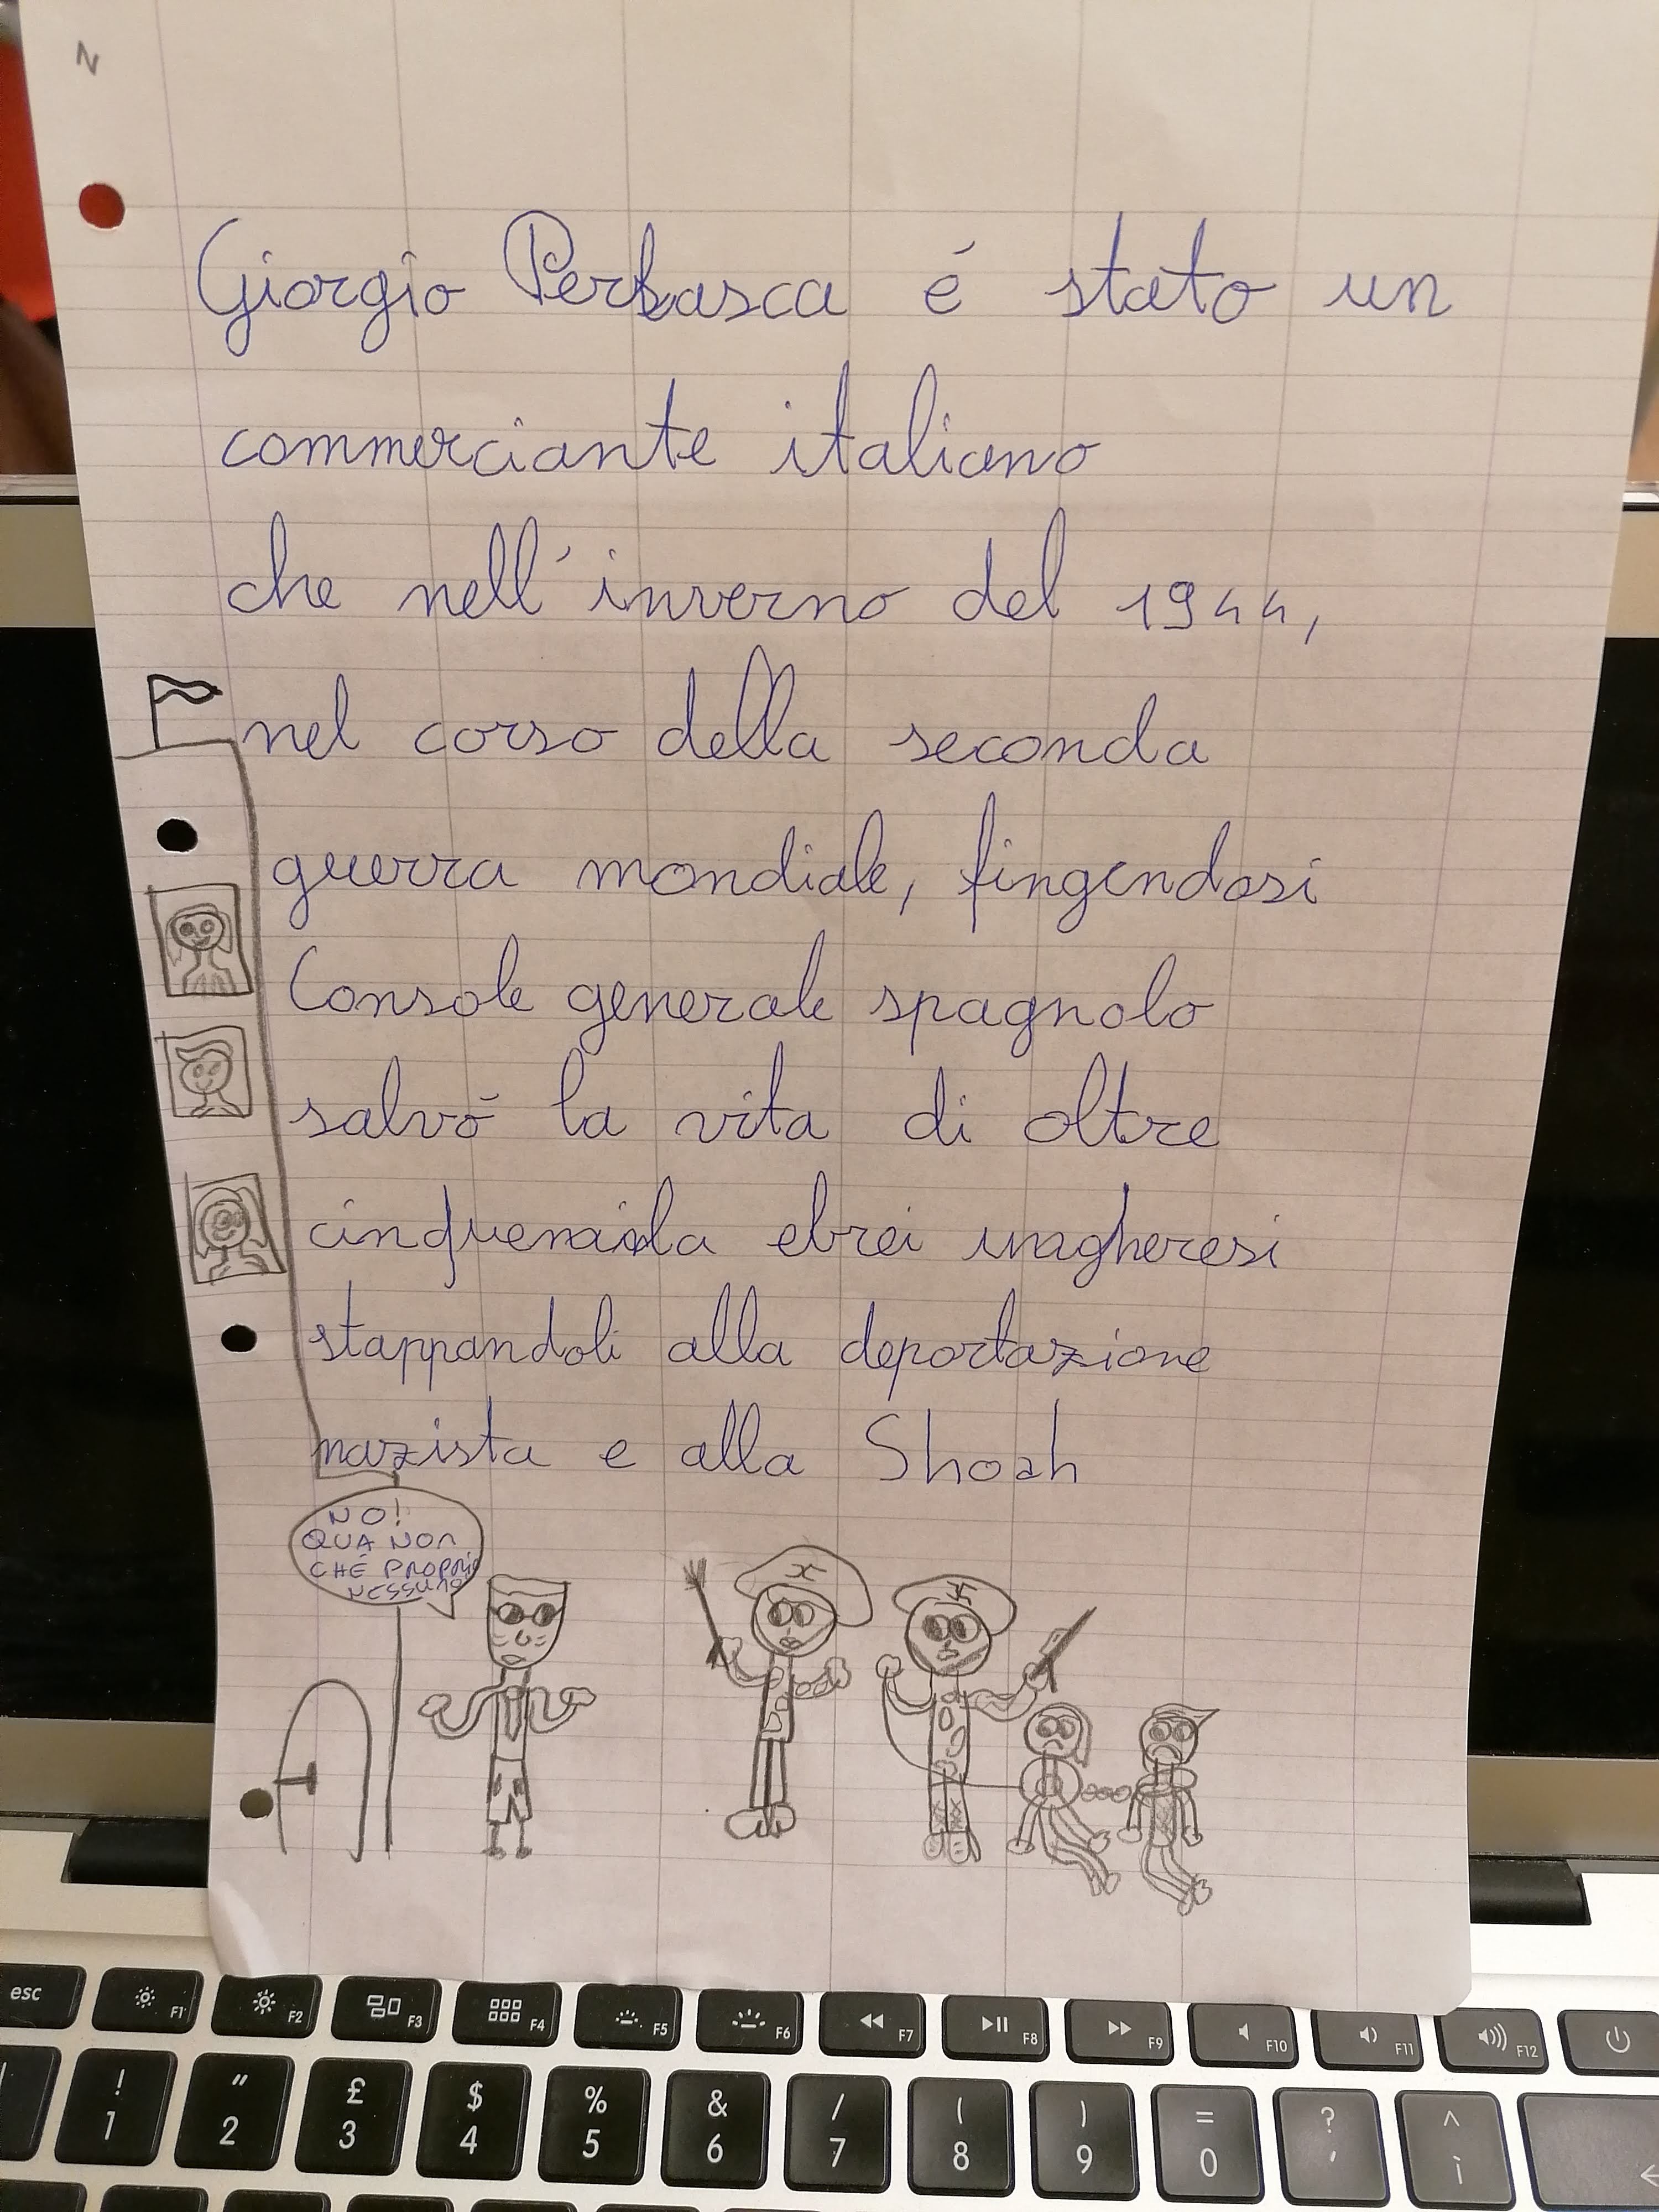 N
Giorgio Perlasca é stato un
commerciante italiano
che nell'inverno del 1944,
nel corso della seconda
guerra mondiale, fingendosi
Console generale spagnolo
salvò la vita di oltre
ebrei ungheresi
stappandoli alla deportazione
nazista e alla Shoah
NO!
QUA NON
CHÉ PROPRIO
NESSUNO
esc F1 F2 F3 F4 F5 F6 F7 F8 F9 F10 F11 F12
! " £ $ % & / ( ) = ? ^
1 2 3 4 5 6 7 8 9 0 ' ì